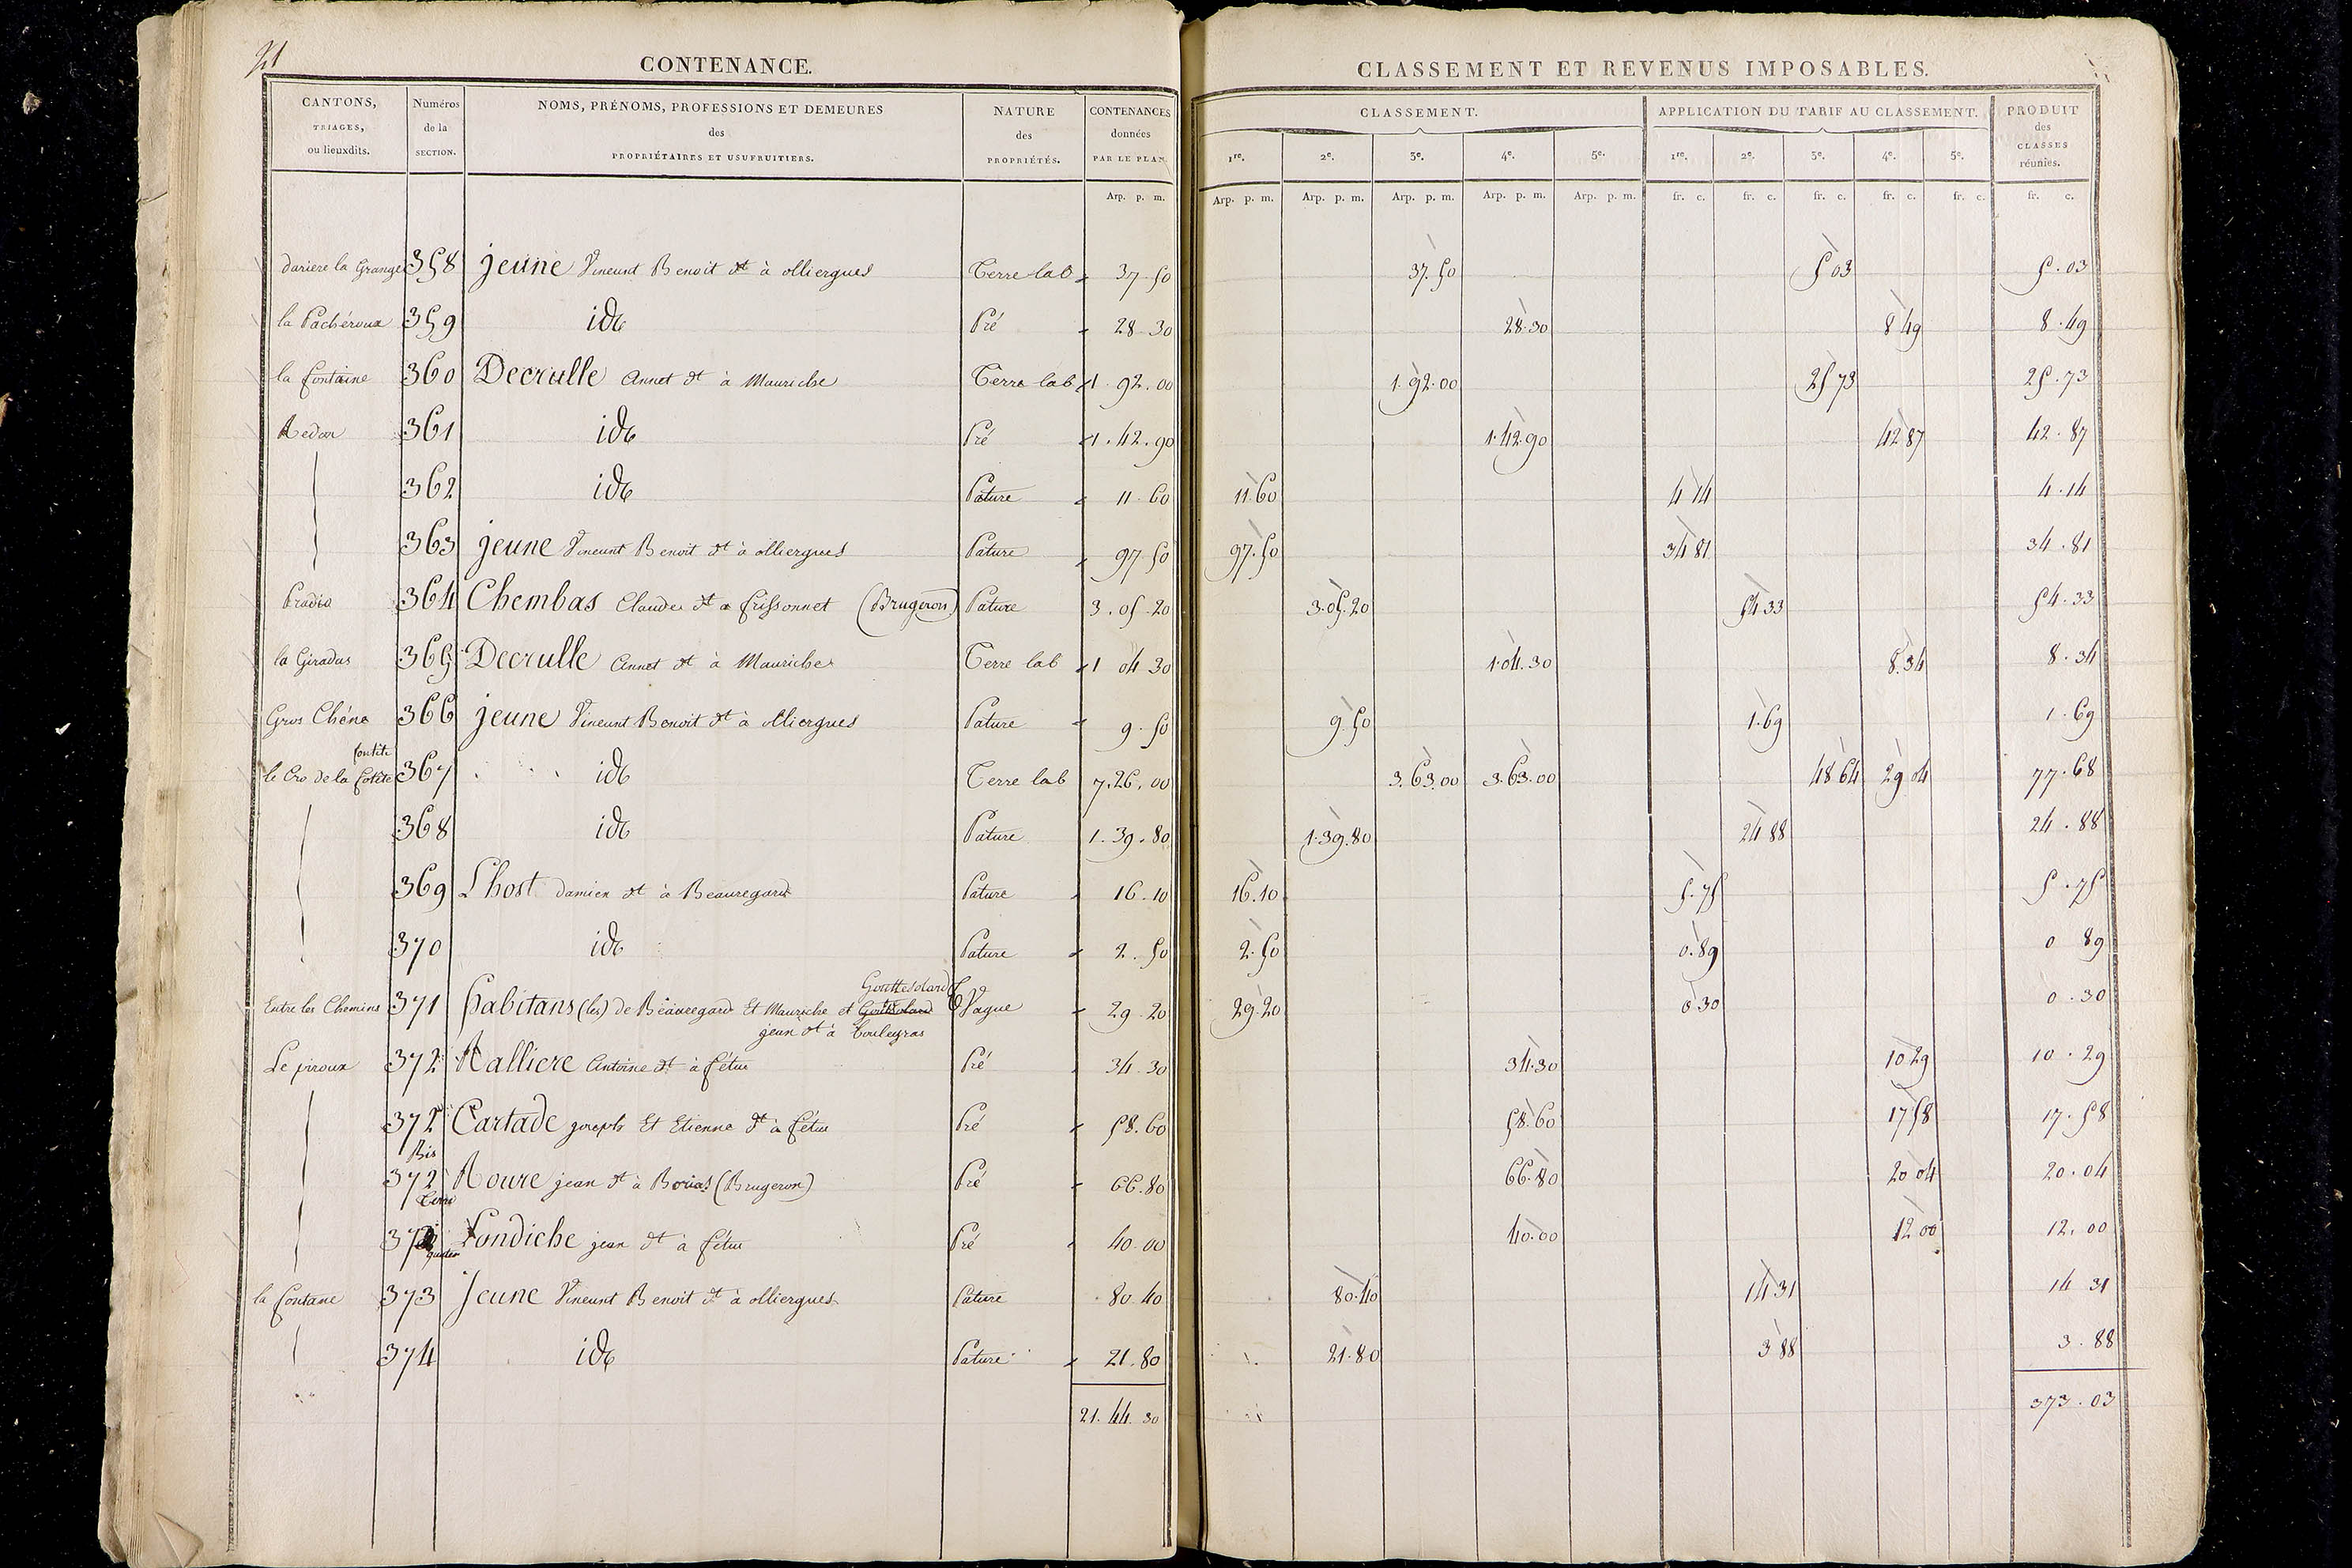 21
CONTENANCE.
CLASSEMENT ET REVENUS IMPOSABLES.
CANTONS, TRIAGES, ou lieuxdits.
Numéros de la SECTION.
NOMS, PRÉNOMS, PROFESSIONS ET DEMEURES des PROPRIÉTAIRES ET USUFRUITIERS.
NATURE des PROPRIÉTÉS.
CONTENANCES données PAR LE PLAN.
CLASSEMENT.
APPLICATION DU TARIF AU CLASSEMENT.
PRODUIT des CLASSES réunies.
1re. 2e. 3e. 4e. 5e. 1re. 2e. 3e. 4e. 5e.
Arp. p. m. Arp. p. m. Arp. p. m. Arp. p. m. Arp. p. m. Arp. p. m. fr. c. fr. c. fr. c. fr. c. fr. c. fr. c.
dariere la Grange 358 jeune Vincent Benoit dt à olliergues Terre lab 37.50 37.50 5 03 5.03
la Pachéroux 359 id Pré 28.30 28.30 8 49 8.49
la fontaine 360 Decrulle Annet dt à Mauriche Terre lab 1.92.00 1.92.00 25 73 25.73
Redon 361 id Pré 1.42.90 1.42.90 42 87 42.87
362 id Pature 11.60 11.60 4 14 4.14
363 jeune Vincent Benoit dt à olliergues Pature 97.50 97.50 34 81 34.81
Pradia 364 Chembas Claude dt a frissonnet (Brugeron) Pature 3.05.20 3.05.20 54.33 54.33
la Giradas 365 Decrulle Annet dt à Mauriche Terre lab 1 04 30 1.04.30 8.34 8.34
Gros Chéne 366 jeune Vincent Benoit dt à olliergues Pature 9.50 9.50 1.69 1.69
le Cro de la 367 id Terre lab 7.26.00 3.63.00 3.63.00 48 64 29 04 77.68
368 id Pature 1.39.80 1.39.80 24 88 24.88
369 Lhost damien dt à Beauregard Pature 16.10 16.10 5.75 5.75
370 id Pature 2.50 2.50 0.89 0 89
Gouttesolard
Entre les Chemins 371 habitans (les) de Beauregard Et Mauriche et Vague 29.20 29.20 0 30 0.30
jean dt à
Le piroux 372 Ralliere Antoine dt à fétus Pré 34.30 34.30 10 29 10.29
372 Bis Cartade joseph Et Etienne dt à fétus Pré 58.60 58.60 17 58 17.58
372 Roure jean dt à Borias (Brugeron) Pré 66.80 66.80 20 04 20.04
372 quater Fondiche jean dt à fétus Pré 40.00 40.00 12 00 12.00
la fontane 373 Jeune Vincent Benoit dt à olliergues Pature 80.40 80.40 14 31 14 31
374 id Pature 21.80 21.80 3 88 3.88
21.44.30 373.03